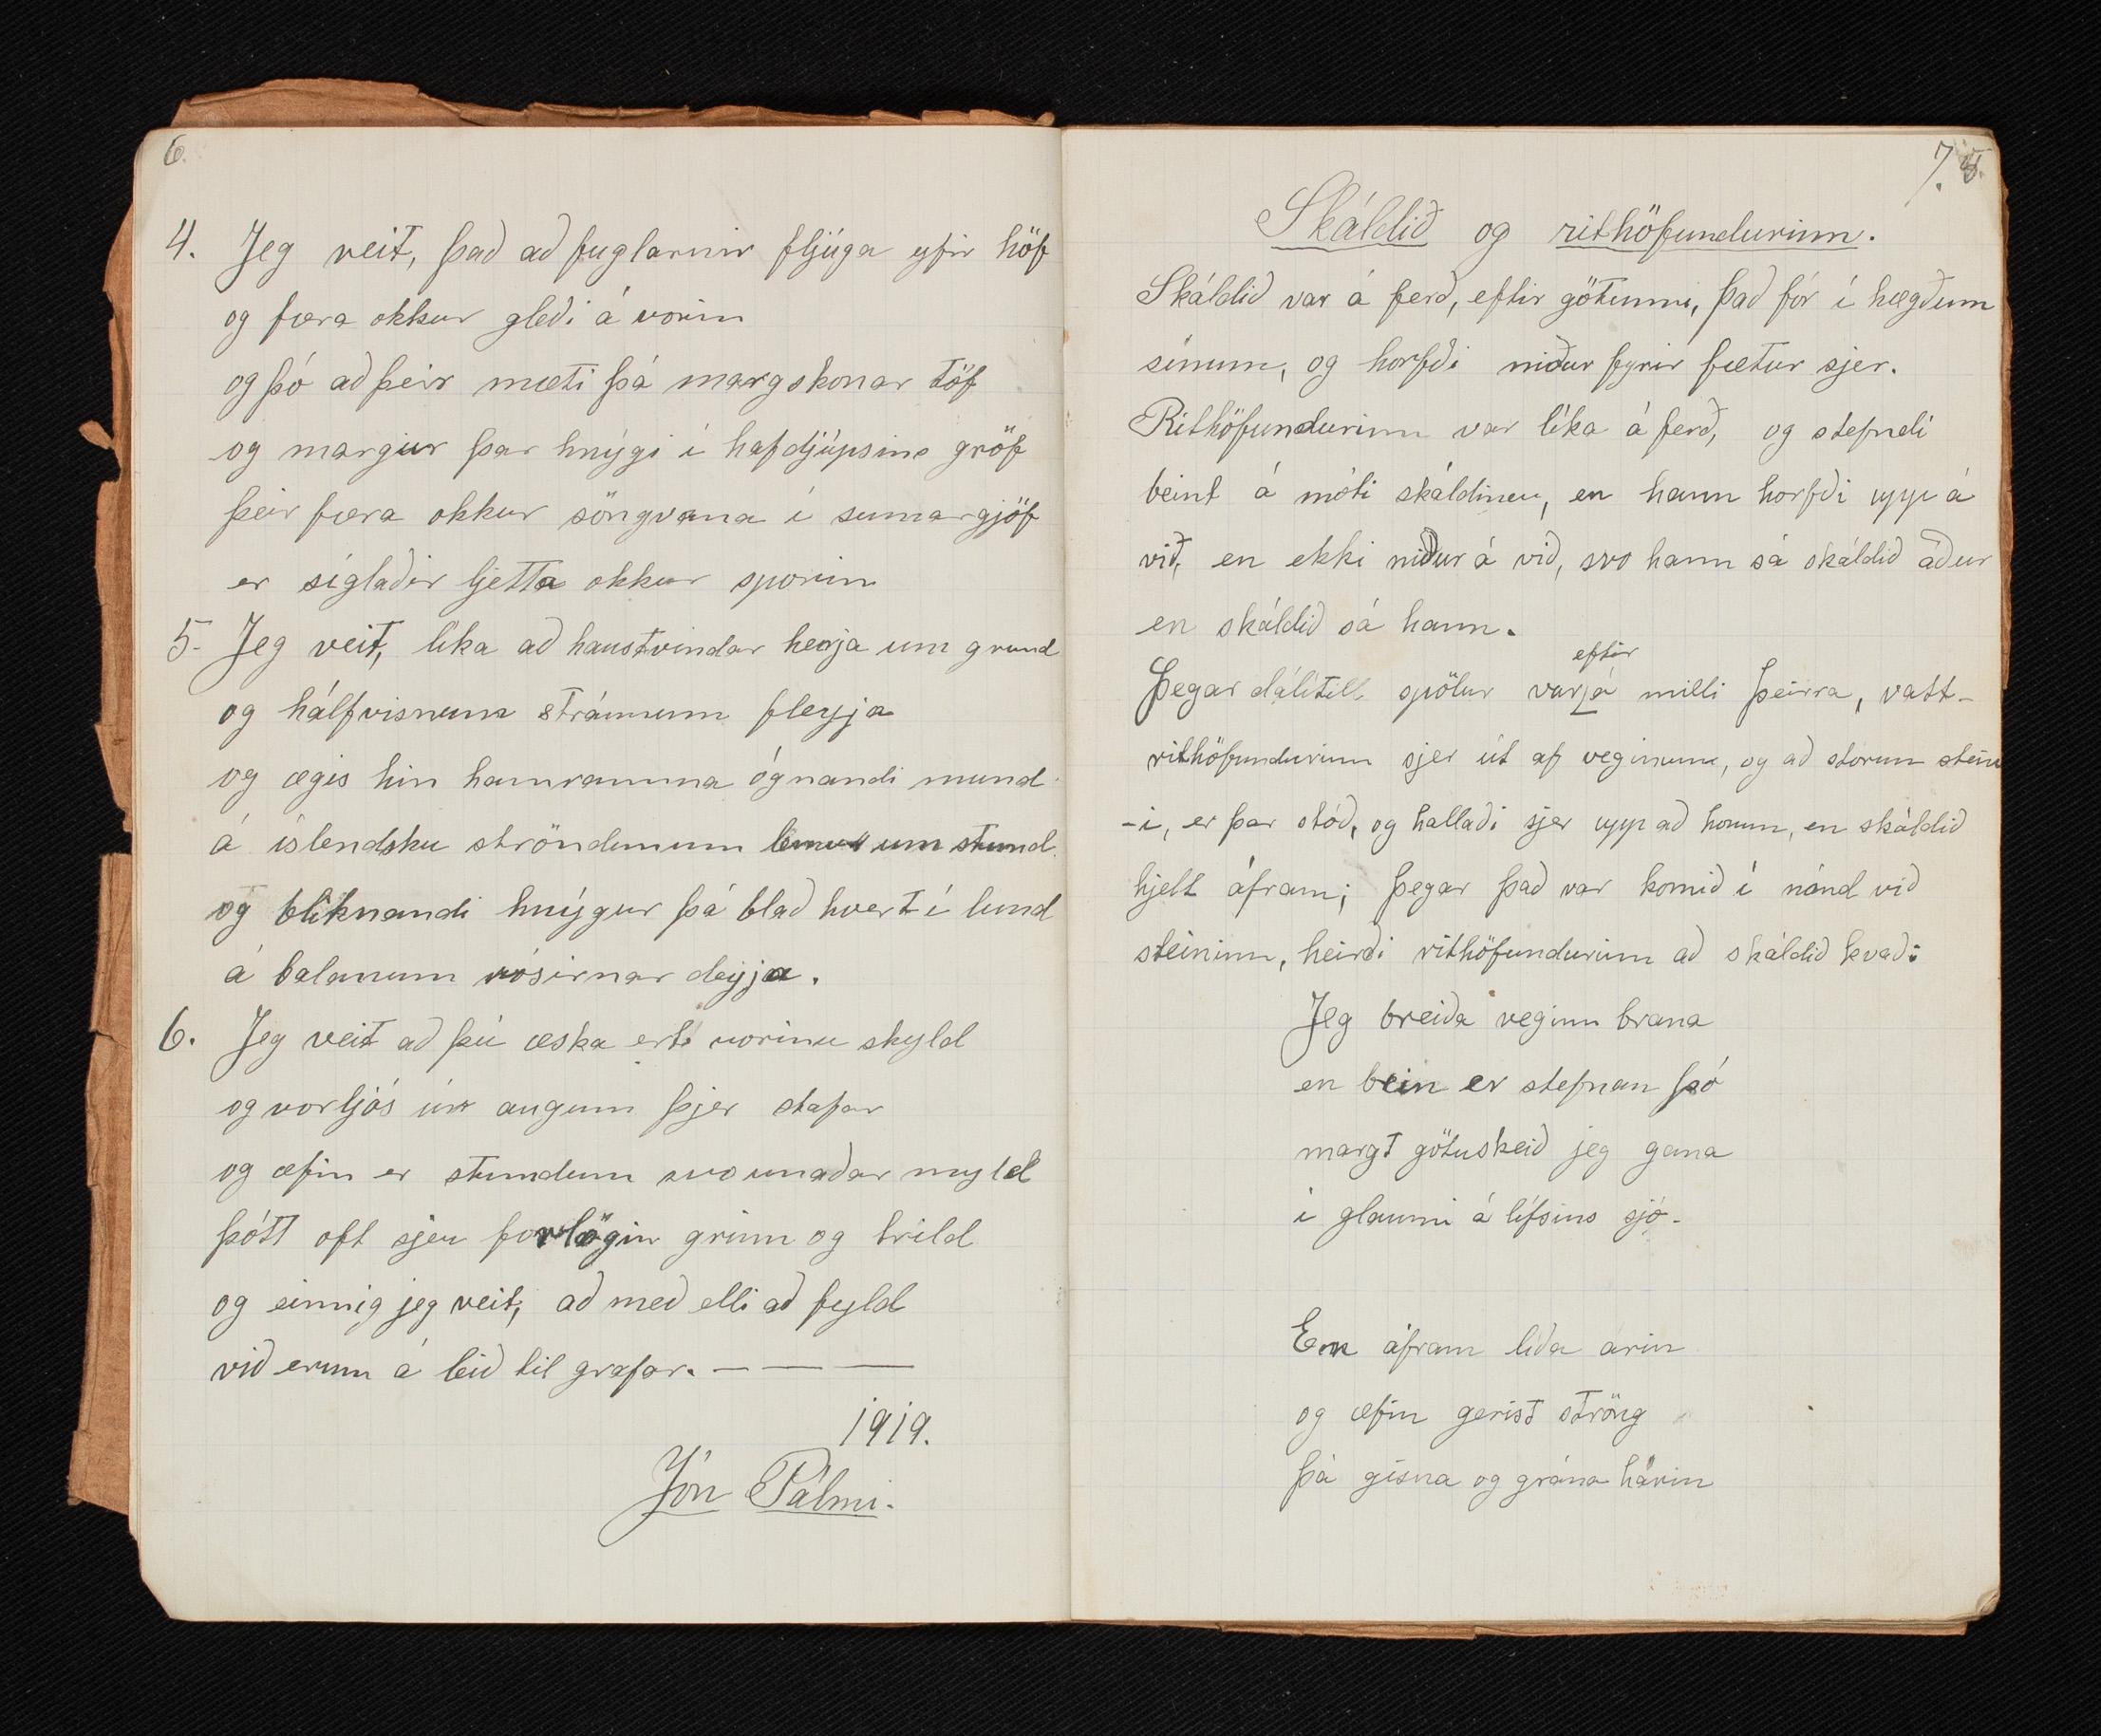 6.
4. Jeg veit, það að fuglarnir fljúga yfir höf
og færa okkur gleði á vorin
og þó að þeir mæti þá margskonar töf
og margur þar hnýgi í hafdjúpsins gröf
þeir færa okkur söngvana í sumargjöf
er síglaðir ljetta okkur sporin
5. Jeg veit, líka að haustvindar herja um grund
og hálfvisnum stráunum fleyja
og ægis hin hamramma ógnandi mund
á íslendsku ströndunum lemur um stund
og bliknandi hnýgur þá blað hvert í lund
á balanum rósirnar deyja.
6. Jeg veit að þú æska ert vorinu skyld
og vorljós úr augum þjer stafar
og æfin er stundum svo unaðar myld
þótt oft sjeu forlögin grimm og trild
og einnig jeg veit, að með elli að fyld
við erum á leið til grafar. — — —
1919.
Jón Pálmi.
7.
Skáldið og rithöfundurinn.
Skáldið var á ferð, eftir götunni, það fór í hægðum
sínum, og horfði niður fyrir fætur sjer.
Rithöfundurinn var líka á ferð, og stefndi
beint á móti skáldinu, en hann horfði upp á
við, en ekki niður á við, svo hann sá skáldið áður
en skáldið sá hann.
eftir
Þegar dálítill spölur var á milli þeirra, vatt-
rithöfundurinn sjer út af veginum, og að storum stein
-i, er þar stóð, og hallaði sjer upp að honum, en skáldið
hjelt áfram; þegar það var komið í nánd við
steininn, heirði rithöfundurinn að skáldið kvað:
Jeg breiða veginn brana
en bein er stefnan þó
margt götuskeið jeg gana
í glaumi á lífsins sjó.
En áfram líða árin
og æfin gerist ströng
þá gisna og grána hárin